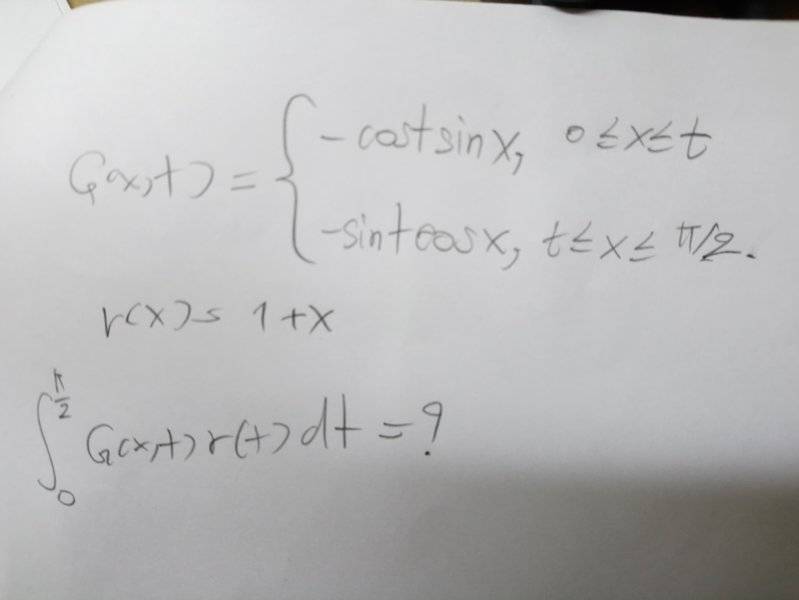 G(x,t) = { -cost sinx, 0 ≤ x ≤ t
-sint cosx, t ≤ x ≤ π/2.
r(x) = 1+x
∫₀^{π/2} G(x,t) r(t) dt = ?